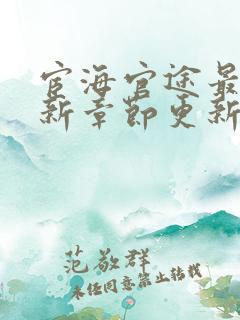 宦海官途最
新章节更新
范敬群
未经同意禁止转载